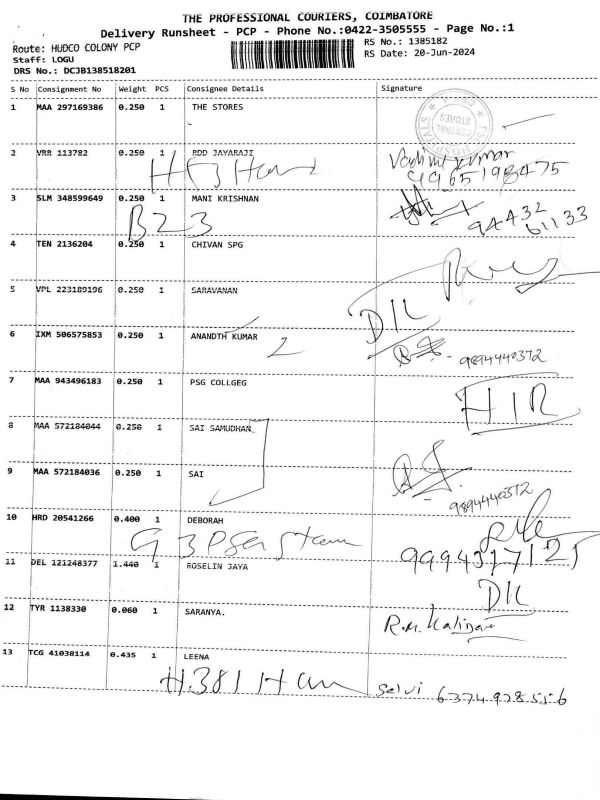 THE PROFESSIONAL COURIERS, COIMBATORE
Delivery Runsheet - PCP - Phone No.:0422-3505555 - Page No.:1
Route: HUDCO COLONY PCP
RS No.: 1385182
Staff: LOGU
RS Date: 20-Jun-2024
DRS No.: DCJB138518201
S No Consignment No Weight PCS Consignee Details Signature
1 MAA 297169386 0.250 1 THE STORES
CENTRAL STORES
2 VRR 113782 0.250 1 RDD JAYARAJI
kumar
9965198475
3 SLM 348599649 0.250 1 MANI KRISHNAN
B23
94432
61133
4 TEN 2136204 0.250 1 CHIVAN SPG
5 VPL 223189196 0.250 1 SARAVANAN
D/L
6 IXM 506575853 0.250 1 ANANDTH KUMAR
2
9894440372
7 MAA 943496183 0.250 1 PSG COLLGEG
H12
8 MAA 572184044 0.250 1 SAI SAMUDHAN
9 MAA 572184036 0.250 1 SAI
9894440372
10 HRD 20541266 0.400 1 DEBORAH
11 DEL 121248377 1.440 1 ROSELIN JAYA
D/L
12 TYR 1138330 0.060 1 SARANYA.
R.M.
13 TCG 41038114 0.435 1 LEENA
H381
selvi 6374928556